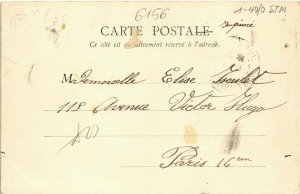 6156
1-40/0 STM
CARTE POSTALE
Imprimé
Ce côté est exclusivement réservé à l'adresse.
Mademoiselle Elise
118 Avenue Victor Hugo
Paris 16em